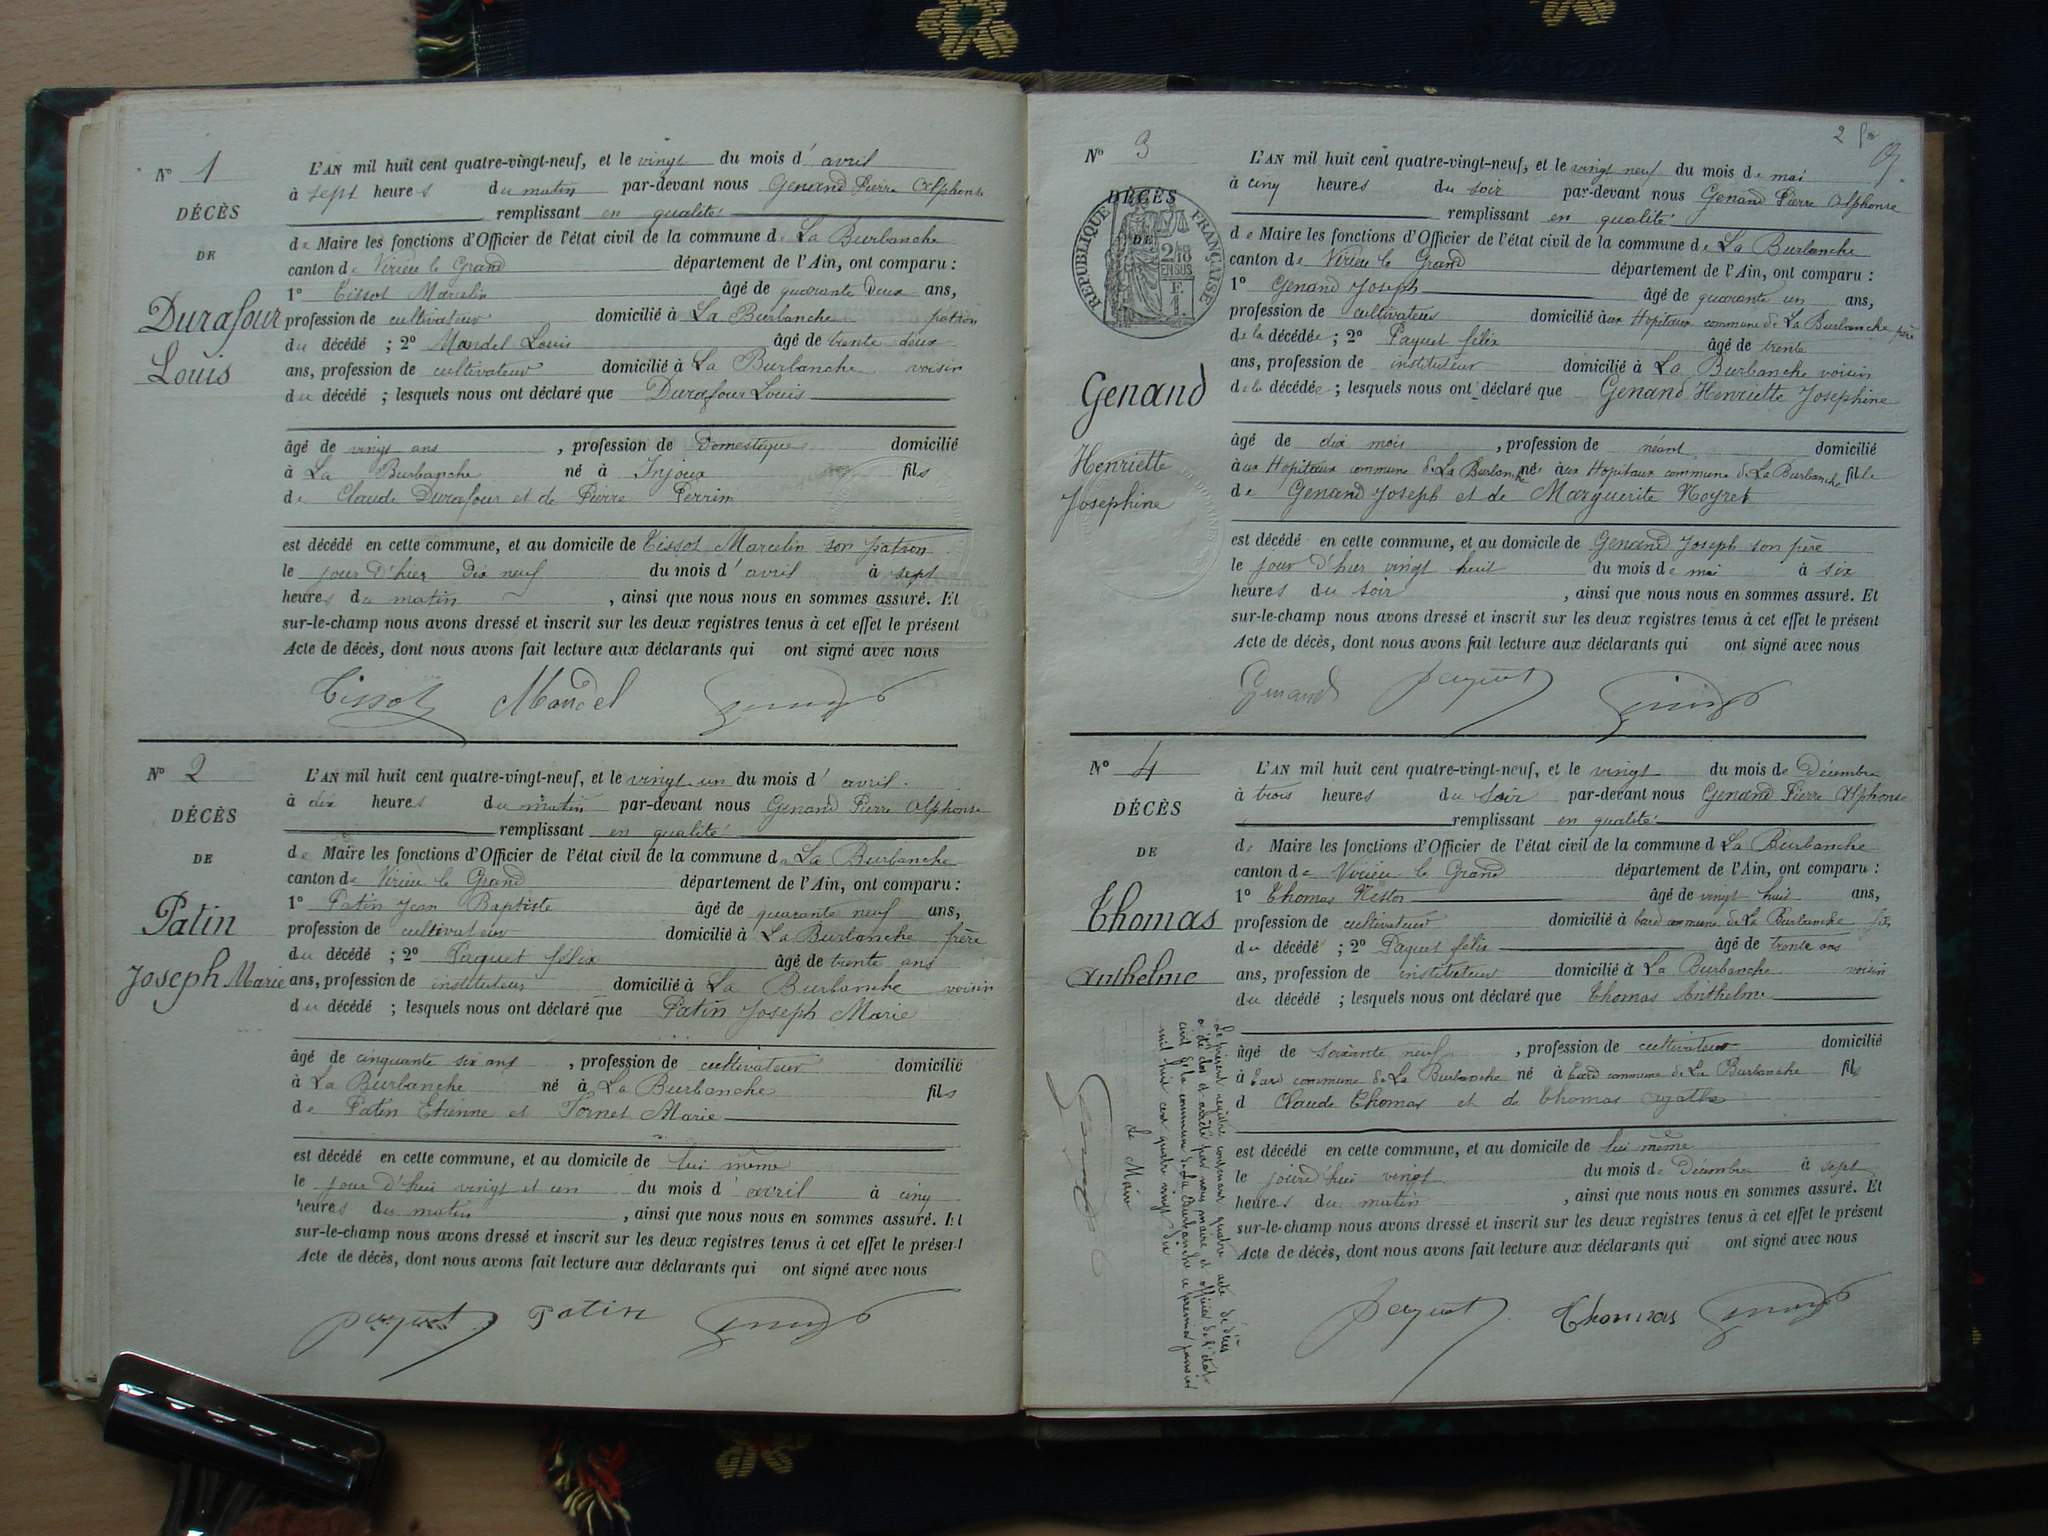 N° 1
DÉCÈS
DE
Durafour
Louis
L'AN mil huit cent quatre-vingt-neuf, et le vingt du mois d'avril
à sept heures du matin par-devant nous Genand Pierre Alphonse
remplissant en qualité
de Maire les fonctions d'Officier de l'état civil de la commune de La Burbanche
canton de Virieu le Grand département de l'Ain, ont comparu :
1° Tissot Marcelin âgé de quarante deux ans,
profession de cultivateur domicilié à La Burbanche patron
du décédé ; 2° Mandel Louis âgé de trente deux
ans, profession de cultivateur domicilié à La Burbanche voisin
du décédé ; lesquels nous ont déclaré que Durafour Louis
âgé de vingt ans, profession de Domestique domicilié
à La Burbanche né à Injoux fils
de Claude Durafour et de Pierre Perrin
est décédé en cette commune, et au domicile de Tissot Marcelin son patron
le jour d'hier dix neuf du mois d'avril à sept
heures du matin, ainsi que nous nous en sommes assuré. Et
sur-le-champ nous avons dressé et inscrit sur les deux registres tenus à cet effet le présent
Acte de décès, dont nous avons fait lecture aux déclarants qui ont signé avec nous
Tissot Mandel
N° 2
DÉCÈS
DE
Patin
Joseph Marie
L'AN mil huit cent quatre-vingt-neuf, et le vingt un du mois d'avril
à dix heures du matin par-devant nous Genand Pierre Alphonse
remplissant en qualité
de Maire les fonctions d'Officier de l'état civil de la commune de La Burbanche
canton de Virieu le Grand département de l'Ain, ont comparu :
1° Patin Jean Baptiste âgé de quarante neuf ans,
profession de cultivateur domicilié à La Burbanche frère
du décédé ; 2° Paquet félix âgé de trente ans
ans, profession de instituteur domicilié à La Burbanche voisin
du décédé ; lesquels nous ont déclaré que Patin Joseph Marie
âgé de cinquante six ans, profession de cultivateur domicilié
à La Burbanche né à La Burbanche fils
de Patin Etienne et Fornet Marie
est décédé en cette commune, et au domicile de lui même
le jour d'hui vingt et un du mois d'avril à cinq
heures du matin, ainsi que nous nous en sommes assuré. Et
sur-le-champ nous avons dressé et inscrit sur les deux registres tenus à cet effet le présent
Acte de décès, dont nous avons fait lecture aux déclarants qui ont signé avec nous
paquet Patin
2
N° 3
DÉCÈS
DE
RÉPUBLIQUE FRANÇAISE
Genand
Henriette
Josephine
L'AN mil huit cent quatre-vingt-neuf, et le vingt neuf du mois de mai
à cinq heures du soir par-devant nous Genand Pierre Alphonse
remplissant en qualité
de Maire les fonctions d'Officier de l'état civil de la commune de La Burbanche
canton de Virieu le Grand département de l'Ain, ont comparu :
1° Genand Joseph âgé de quarante un ans,
profession de cultivateur domicilié aux Hopitaux commune de La Burbanche père
de la décédée ; 2° Paquet félix âgé de trente
ans, profession de instituteur domicilié à La Burbanche voisin
de la décédée ; lesquels nous ont déclaré que Genand Henriette Josephine
âgé de dix mois, profession de néant domicilié
aux Hopitaux commune de La Burbanche née aux Hopitaux commune de La Burbanche fille
de Genand Joseph et de Marguerite Noyret
est décédé en cette commune, et au domicile de Genand Joseph son père
le jour d'hier vingt huit du mois de mai à six
heures du soir, ainsi que nous nous en sommes assuré. Et
sur-le-champ nous avons dressé et inscrit sur les deux registres tenus à cet effet le présent
Acte de décès, dont nous avons fait lecture aux déclarants qui ont signé avec nous
Genand paquet
N° 4
DÉCÈS
DE
Thomas
Anthelme
L'AN mil huit cent quatre-vingt-neuf, et le vingt du mois de Décembre
à trois heures du soir par-devant nous Genand Pierre Alphonse
remplissant en qualité
de Maire les fonctions d'Officier de l'état civil de la commune d La Burbanche
canton de Virieu le Grand département de l'Ain, ont comparu :
1° Thomas Nestor âgé de vingt huit ans,
profession de cultivateur domicilié à Eard commune de La Burbanche fils
du décédé ; 2° Paquet félix âgé de trente ans
ans, profession de instituteur domicilié à La Burbanche voisin
du décédé ; lesquels nous ont déclaré que Thomas Anthelme
âgé de soixante neuf, profession de cultivateur domicilié
à Eard commune de La Burbanche né à Eard commune de La Burbanche fils
d Claude Thomas et de Thomas agathe
est décédé en cette commune, et au domicile de lui même
le jourd'hui vingt du mois de Décembre à sept
heures du matin, ainsi que nous nous en sommes assuré. Et
sur-le-champ nous avons dressé et inscrit sur les deux registres tenus à cet effet le présent
Acte de décès, dont nous avons fait lecture aux déclarants qui ont signé avec nous
paquet Thomas
Le présent registre contenant quatre acte de décès
a été clos et arrêté par nous maire et officier de l'état
civil de la commune de La Burbanche ce premier janvier
mil huit cent quatre vingt dix
Le Maire